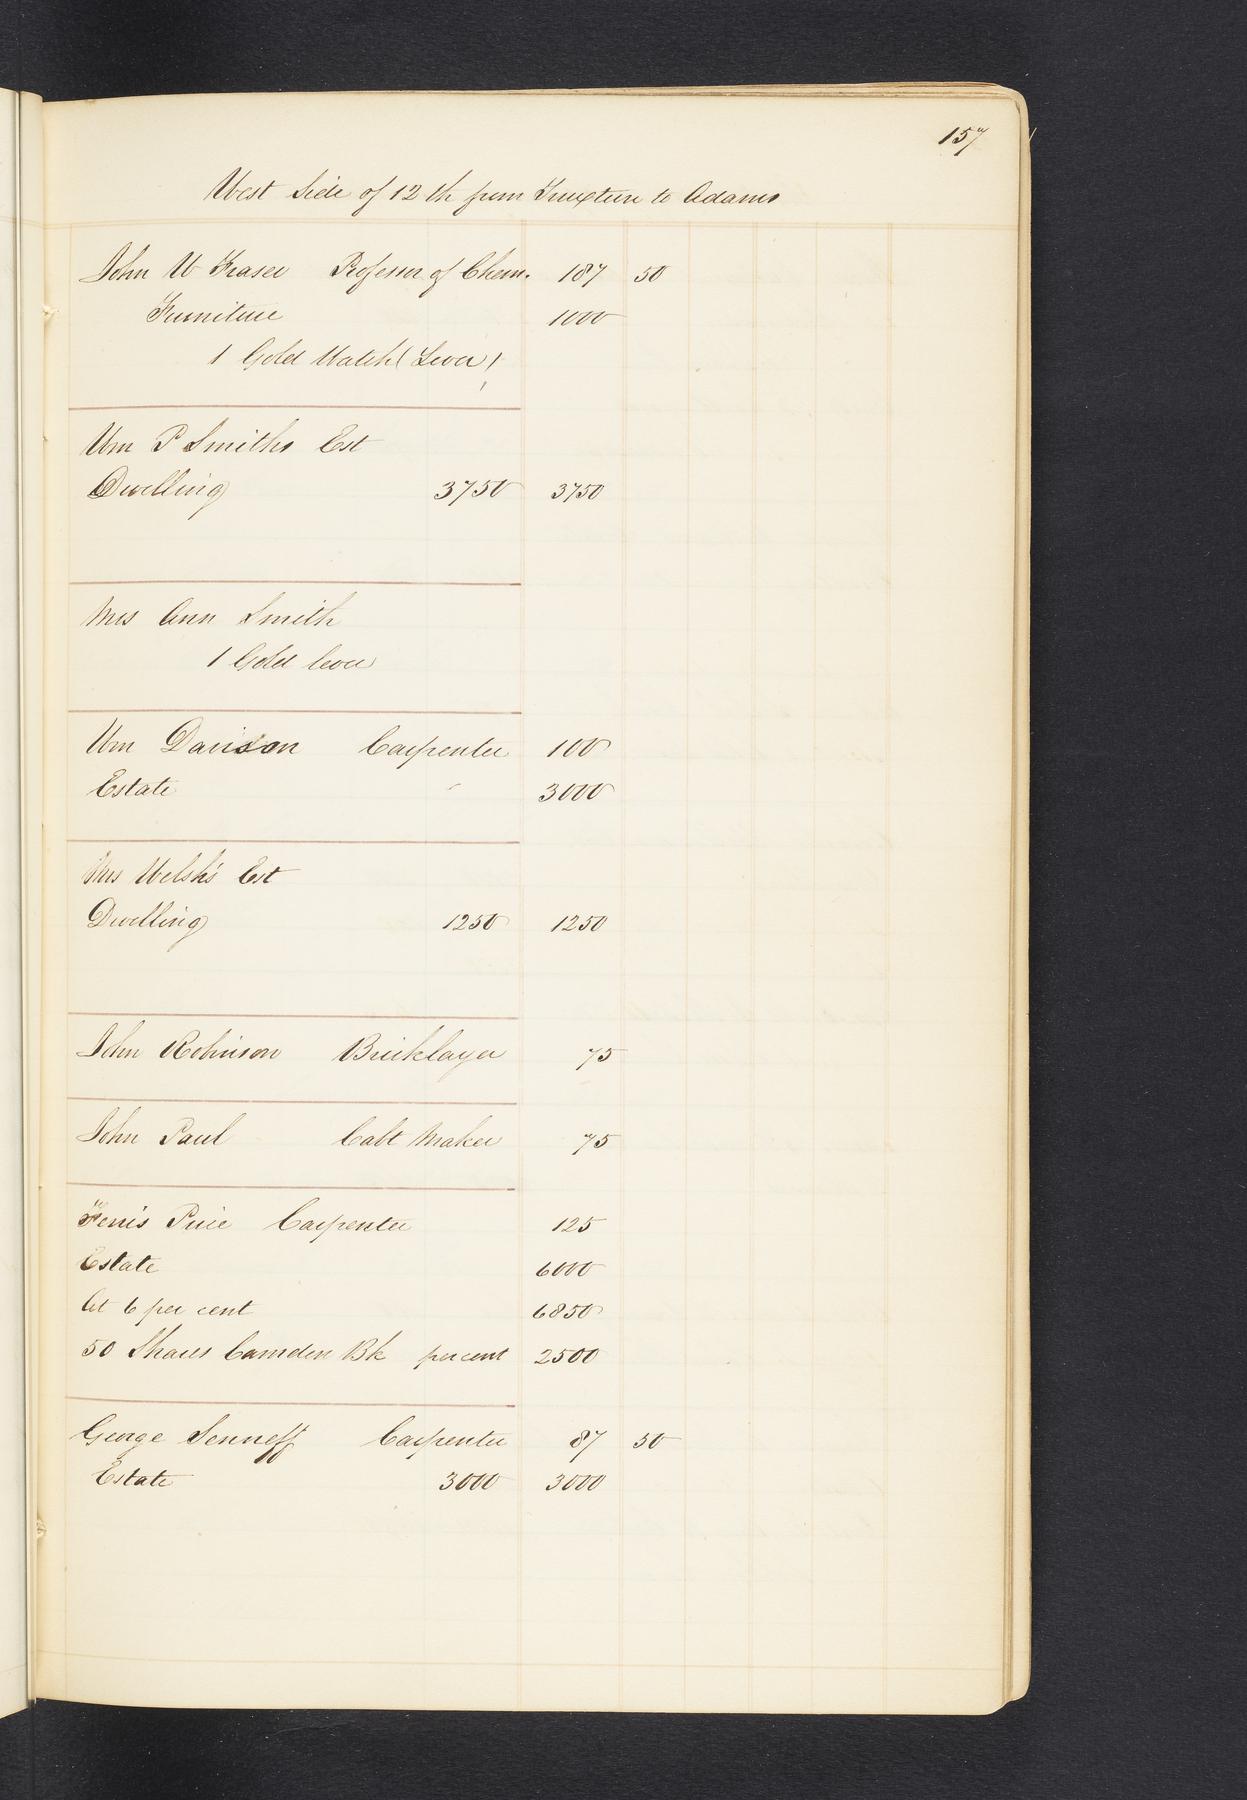 157
West Side of 12th from Truxture to Adams
John W Fraser Professor of Chem. 187 50
Furniture 1000
1 Gold Watch (Lever)
Wm P Smiths Est
Dwelling 3750 3750
Mrs Ann Smith
1 Gold lever
Wm Davison Carpenter 100
Estate 3000
Mrs Welsh's Est
Dwelling 1250 1250
John Robinson Bricklayer 75
John Paul Cabt Maker 75
Ferris Price Carpenter 125
Estate 6000
At 6 per cent 6850
50 Shares Camden Bk per cent 2500
George Senneff Carpenter 87 50
Estate 3000 3000